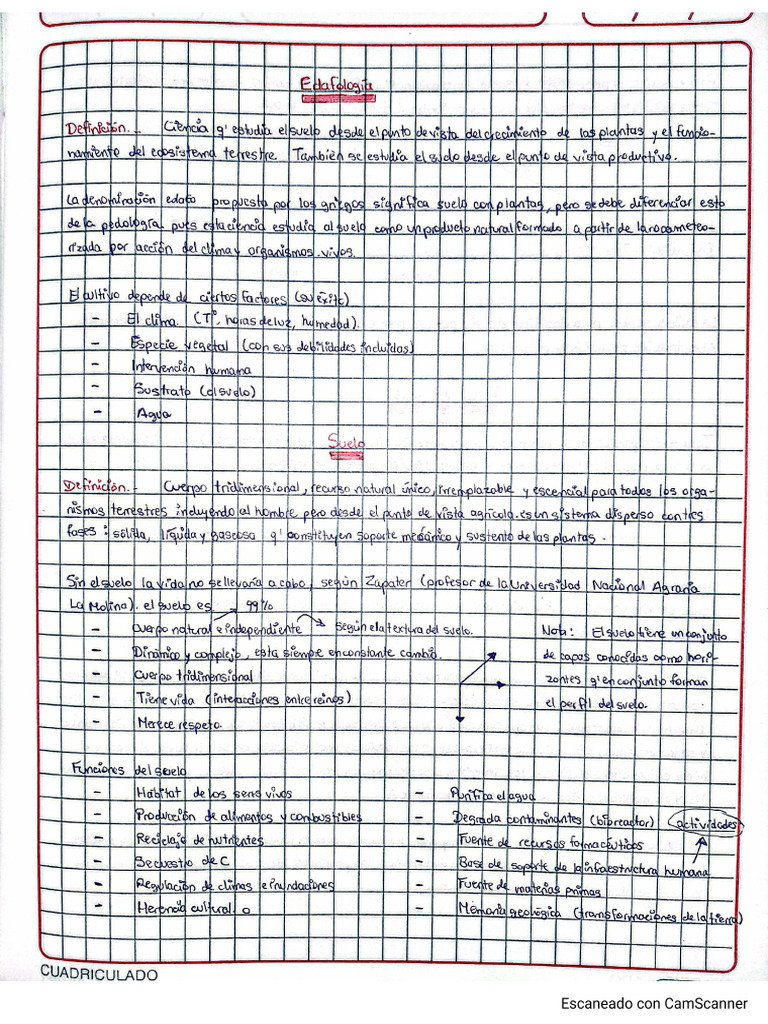 Edafología
Definición.- Ciencia q' estudia el suelo desde el punto de vista del crecimiento de las plantas y el funcio-
namiento del ecosistema terrestre. También se estudia el suelo desde el punto de vista productivo.
La denominación edafo propuesta por los griegos significa suelo con plantas, pero se debe diferenciar esto
de la pedología pues esta ciencia estudia al suelo como un producto natural formado a partir de la roca meteo-
rizada por acción del clima y organismos vivos.
El cultivo depende de ciertos factores (su éxito)
- El clima. (T°, horas de luz, humedad).
- Especie vegetal (con sus debilidades incluidas)
- Intervención humana
- Sustrato (el suelo)
- Agua
Suelo
Definición.- Cuerpo tridimensional, recurso natural único, irremplazable y escencial para todos los orga-
nismos terrestres incluyendo al hombre pero desde el punto de vista agrícola es un sistema disperso con tres
fases: sólida, líquida y gaseosa q' constituyen soporte mecánico y sustento de las plantas.
Sin el suelo la vida no se llevaría a cabo, según Zapater (profesor de la Universidad Nacional Agraria
La Molina). el suelo es 99%
- Cuerpo natural e independiente según ela textura del suelo.
- Dinámico y complejo, esta siempre en constante cambio.
- Cuerpo tridimensional
- Tiene vida (interacciones entre reinos)
- Merece respeto.
Nota: El suelo tiene un conjunto
de capas conocidas como hori-
zontes q' en conjunto forman
el perfil del suelo.
Funciones del suelo
- Habitat de los seres vivos
- Producción de alimentos y combustibles
- Reciclaje de nutrientes
- Secuestro de C
- Regulación de climas e inundaciones
- Herencia cultural
- Purifica el agua
- Degrada contaminantes (bioreactor) actividades
- Fuente de recursos farmacéuticos
- Base de soporte de la infraestructura humana
- Fuente de materias primas
- Memoria geológica (transformaciones de la tierra)
CUADRICULADO
Escaneado con CamScanner